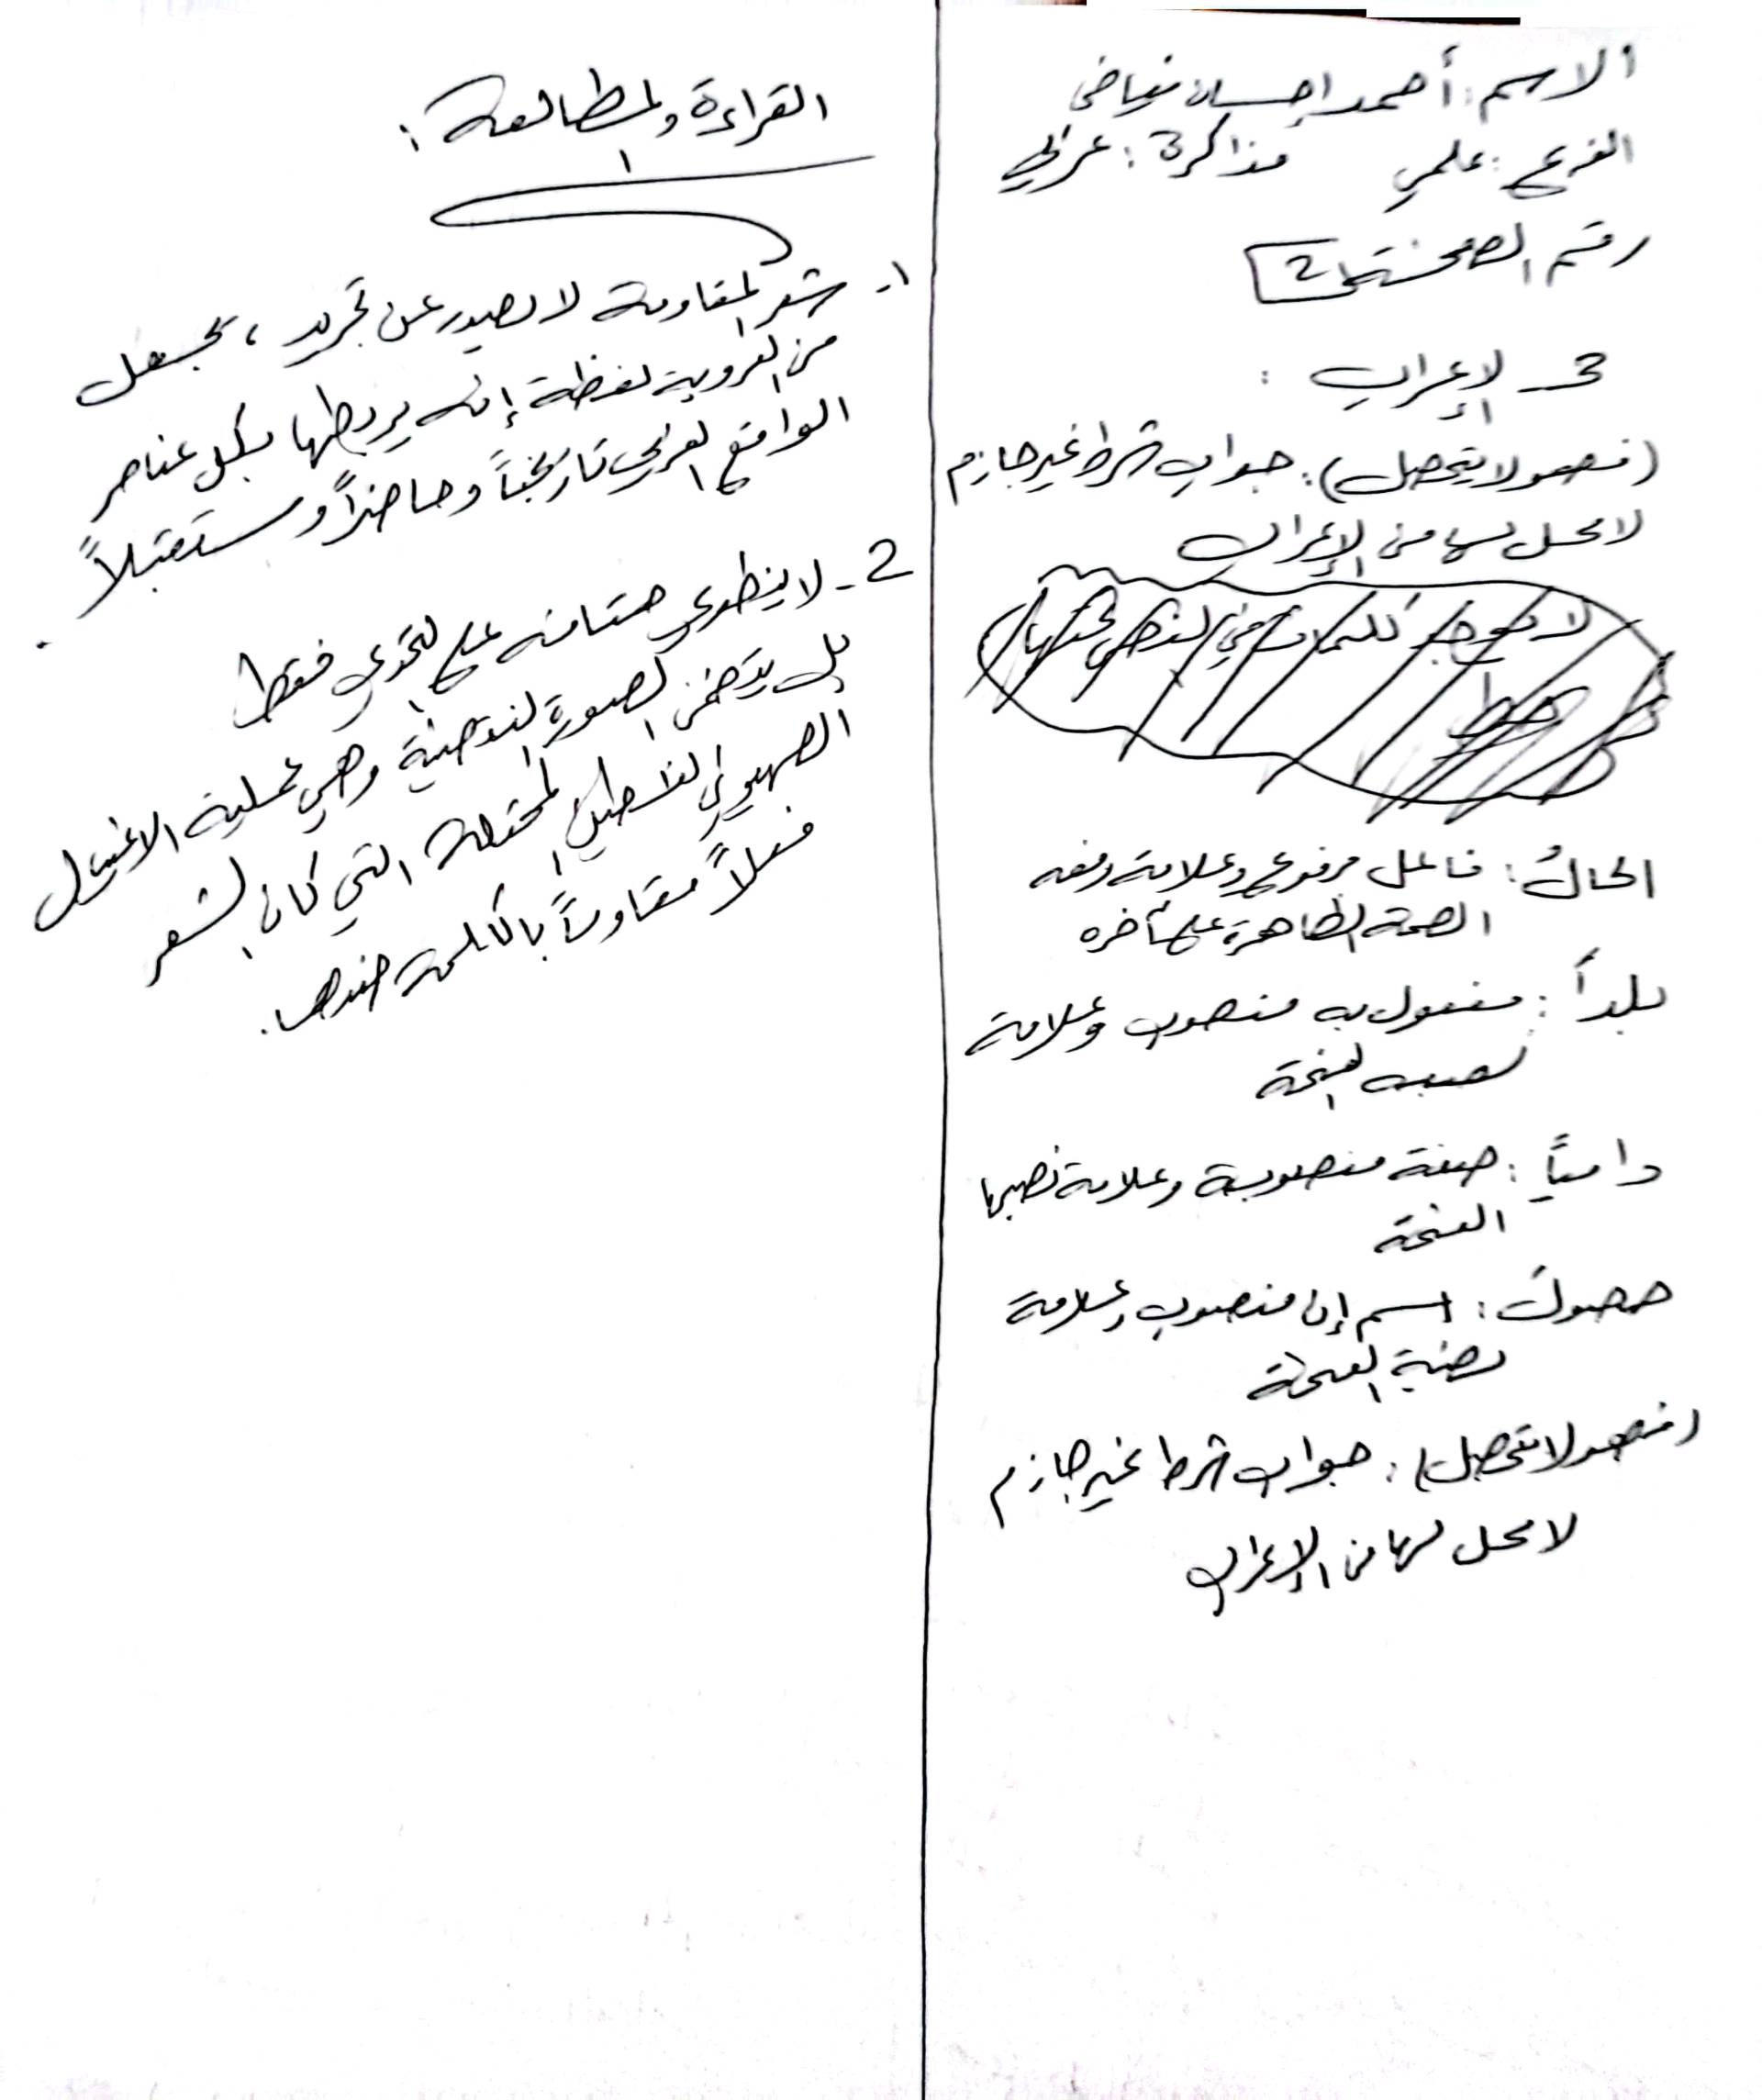 الاسم: أحمد إحسان فياض
الفرع: علمي مذاكرة: عربي
رقم الصفحة 2
3- الإعراب:
(فصمودلا يتحصل): جواب شرط غير جازم
لا محل لها من الإعراب
الحالُ: فاعل مرفوع وعلامة رفعه
الضمة الظاهرة على آخره
بلداً: مفعول به منصوب وعلامة
نصبه الفتحة
دامياً: صفة منصوبة وعلامة نصبها
الفتحة
حصونَ: اسم إن منصوب وعلامة
نصبه الفتحة
جواب شرط غير جازم
لا محل لها من الإعراب
القراءة والمطالعة:
1- شعر المقاومة لا يصدر عن تجريد، يجعل
من العروبة لفظة إنه يربطها بكل عناصر
الواقع العربي تاريخياً وحاضراً ومستقبلاً.
2- لا ينطوي ختامه على التحدي فقط
بل يتضمن الصورة النقيضة وهي عملية الاغتيال
الصهيوني المحتلة التي كان الشعر
فعلاً مقاوماً بالكلمة ضدها.